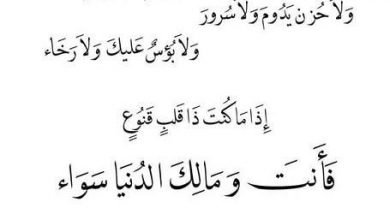 وَلَا حُزْنٌ يَدُومُ وَلَا سُرُورٌ
وَلَا بُؤْسٌ عَلَيْكَ وَلَا رَخَاء
إِذَا مَا كُنْتَ ذَا قَلْبٍ قَنُوعٍ
فَأَنْتَ وَمَالِكُ الدُنْيَا سَوَاء